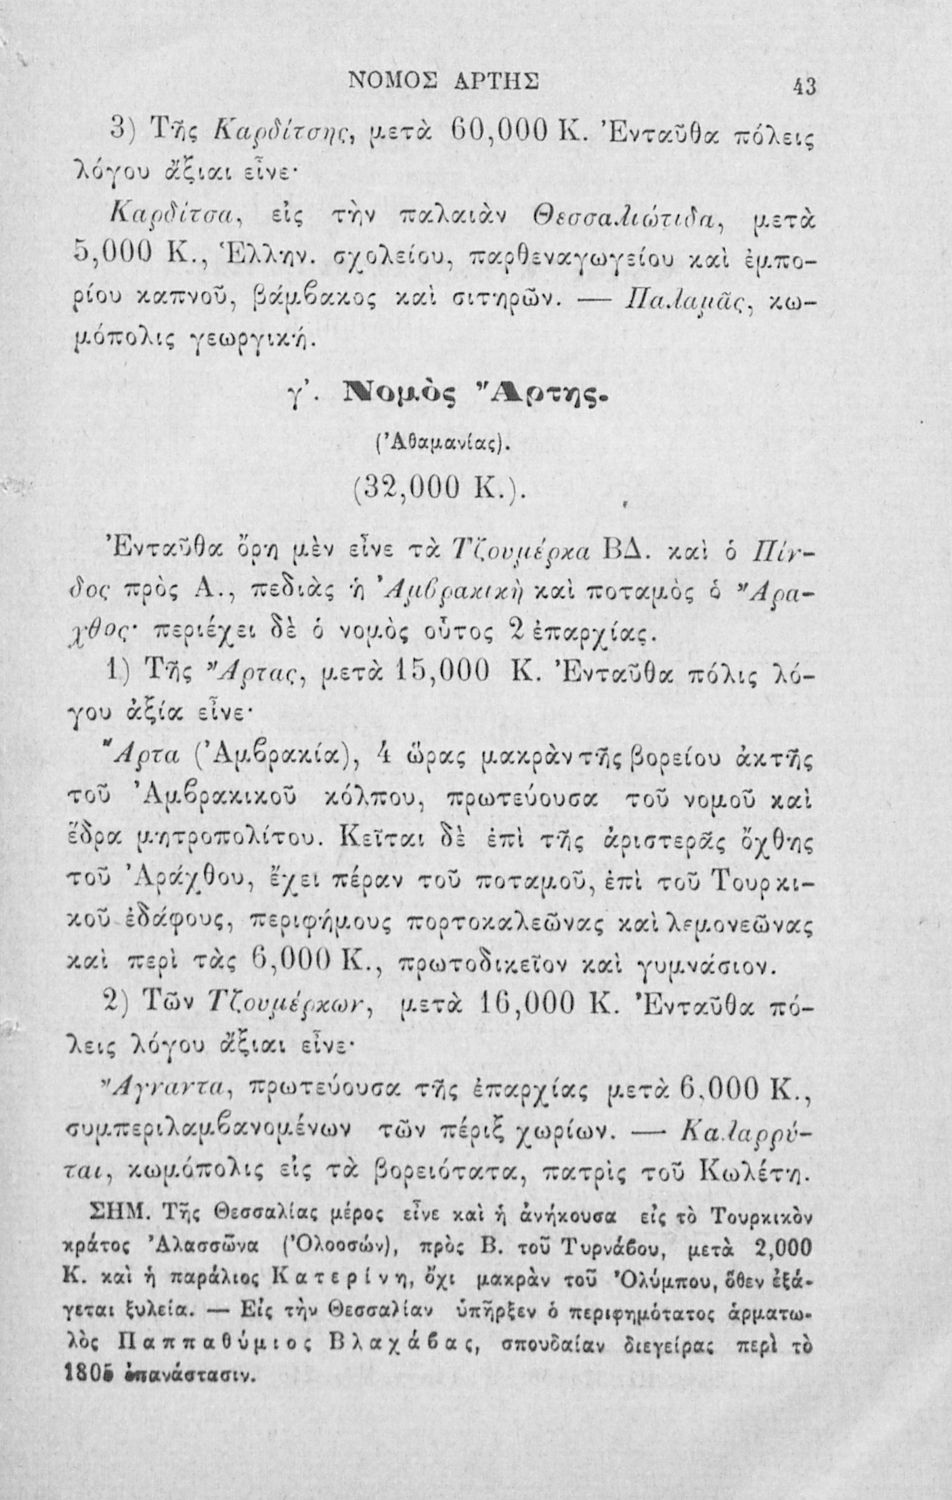 ΝΟΜΟΣ ΑΡΤΗΣ 43
3) Τῆς Καρδίτσης, μετὰ 60,000 Κ. Ἐνταῦθα πόλεις
λόγου ἄξιαι εἶνε·
Καρδίτσα, εἰς τὴν παλαιὰν Θεσσαλιώτιδα, μετὰ
5,000 Κ., Ἑλλην. σχολείου, παρθεναγωγείου καὶ ἐμπο-
ρίου καπνοῦ, βάμβακος καὶ σιτηρῶν. — Παλαμᾶς, κω-
μόπολις γεωργική.
γ΄. Νομὸς Ἄρτης.
(Ἀθαμανίας).
(32,000 Κ.).
Ἐνταῦθα ὄρη μὲν εἶνε τὰ Τζουμέρκα ΒΔ. καὶ ὁ Πίν-
δος πρὸς Α., πεδιὰς ἡ Ἀμβρακικὴ καὶ ποταμὸς ὁ Ἄρα-
χθος· περιέχει δὲ ὁ νομὸς οὗτος 2 ἐπαρχίας.
1) Τῆς Ἄρτας, μετὰ 15,000 Κ. Ἐνταῦθα πόλις λό-
γου ἀξία εἶνε·
Ἄρτα (Ἀμβρακία), 4 ὥρας μακρὰν τῆς βορείου ἀκτῆς
τοῦ Ἀμβρακικοῦ κόλπου, πρωτεύουσα τοῦ νομοῦ καὶ
ἕδρα μητροπολίτου. Κεῖται δὲ ἐπὶ τῆς ἀριστερᾶς ὄχθης
τοῦ Ἀράχθου, ἔχει πέραν τοῦ ποταμοῦ, ἐπὶ τοῦ Τουρκι-
κοῦ ἐδάφους, περιφήμους πορτοκαλεῶνας καὶ λεμονεῶνας
καὶ περὶ τὰς 6,000 Κ., πρωτοδικεῖον καὶ γυμνάσιον.
2) Τῶν Τζουμέρκων, μετὰ 16,000 Κ. Ἐνταῦθα πό-
λεις λόγου ἄξιαι εἶνε·
Ἄγναντα, πρωτεύουσα τῆς ἐπαρχίας μετὰ 6,000 Κ.,
συμπεριλαμβανομένων τῶν πέριξ χωρίων. — Καλαρρύ-
ται, κωμόπολις εἰς τὰ βορειότατα, πατρὶς τοῦ Κωλέτη.
ΣΗΜ. Τῆς Θεσσαλίας μέρος εἶνε καὶ ἡ ἀνήκουσα εἰς τὸ Τουρκικὸν
κράτος Ἀλασσῶνα (Ὀλοοσών), πρὸς Β. τοῦ Τυρνάβου, μετὰ 2,000
Κ. καὶ ἡ παράλιος Κατερίνη, ὄχι μακρὰν τοῦ Ὀλύμπου, ὅθεν ἐξά-
γεται ξυλεία. — Εἰς τὴν Θεσσαλίαν ὑπῆρξεν ὁ περιφημότατος ἁρματω-
λὸς Παππαθύμιος Βλαχάβας, σπουδαίαν διεγείρας περὶ τὸ
ἐπανάστασιν.